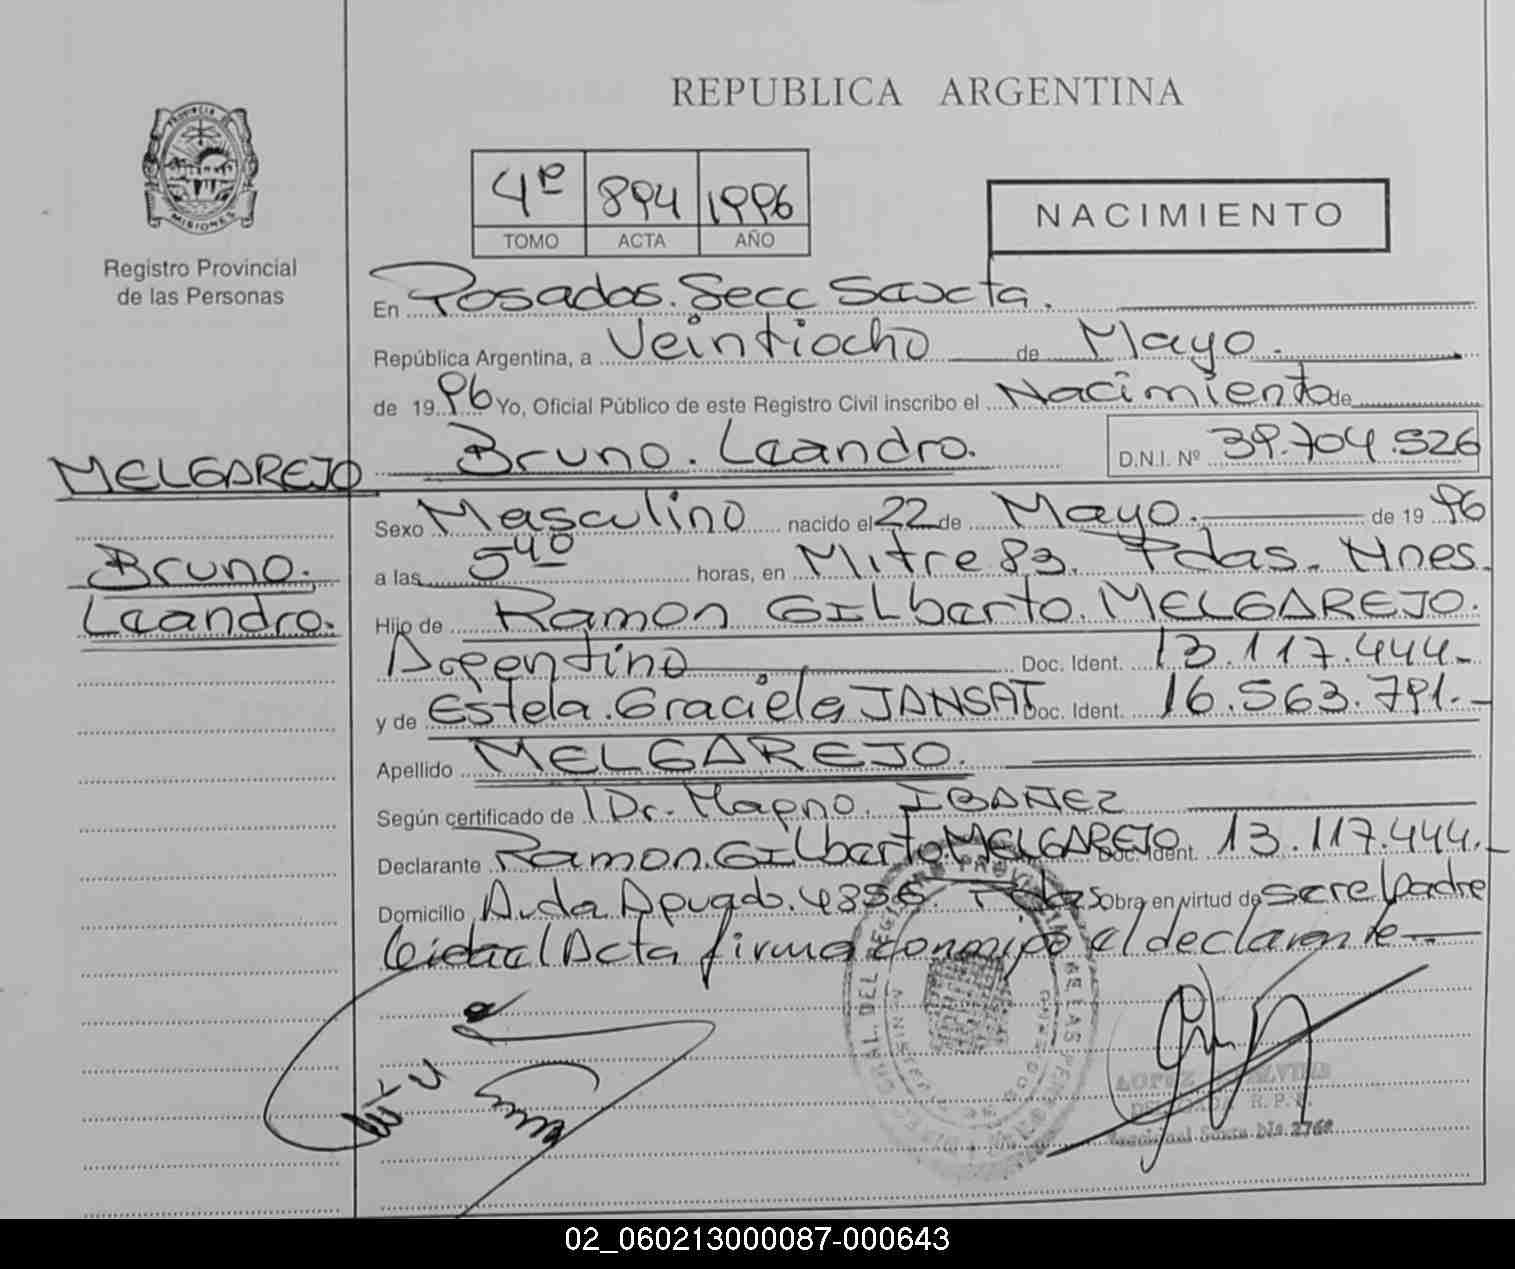 REPUBLICA ARGENTINA
PROVINCIA DE MISIONES
Registro Provincial
de las Personas
4º 894 1996
TOMO ACTA AÑO
NACIMIENTO
En Posadas. Secc Sexta.
República Argentina, a Veintiocho de Mayo.
de 1996 Yo, Oficial Público de este Registro Civil inscribo el Nacimiento de
Bruno. Leandro. D.N.I. Nº 39.704.526
MELGAREJO
Bruno.
Leandro.
Sexo Masculino nacido el 22 de Mayo. de 1996
a las 5 40 horas, en Mitre 83. Pdas. Mnes.
Hijo de Ramon GILberto. MELGAREJO.
Argentino Doc. Ident. 13.117.444.-
y de Estela. Graciela JANSAT Doc. Ident. 16.563.791.-
Apellido MELGAREJO.
Según certificado de Dr. Magno. IBAÑEZ
Declarante Ramon. GILberto. MELGAREJO Doc. Ident. 13.117.444.-
Domicilio Avda 4856. Pdas Obra en virtud de ser el padre
Leida el Acta firma conmigo el declarante
LOPEZ
R.P.P.
Seccional Sexta bis 276º
02_060213000087-000643